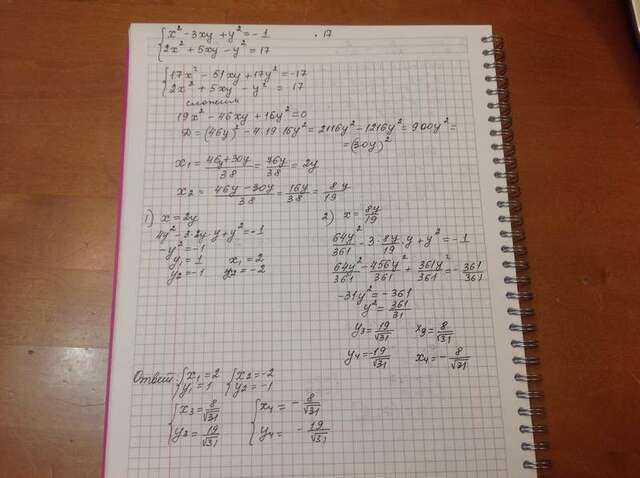 {x² - 3xy + y² = -1 | · 17
{2x² + 5xy - y² = 17
{17x² - 51xy + 17y² = -17
{2x² + 5xy - y² = 17
сложим
19x² - 46xy + 16y² = 0
D = (46y)² - 4·19·16y² = 2116y² - 1216y² = 900y² =
= (30y)²
x₁ = (46y + 30y)/38 = 76y/38 = 2y
x₂ = (46y - 30y)/38 = 16y/38 = 8y/19
1) x = 2y
4y² - 3·2y·y + y² = -1
-y² = -1
y₁ = 1 x₁ = 2
y₂ = -1 x₂ = -2
2) x = 8y/19
64y²/361 - 3·8y/19·y + y² = -1
64y²/361 - 456y²/361 + 361y²/361 = -361/361
-31y² = -361
y² = 361/31
y₃ = 19/√31 x₃ = 8/√31
y₄ = -19/√31 x₄ = -8/√31
Ответ: {x₁ = 2 {x₂ = -2
{y₁ = 1 {y₂ = -1
{x₃ = 8/√31 {x₄ = -8/√31
{y₃ = 19/√31 {y₄ = -19/√31